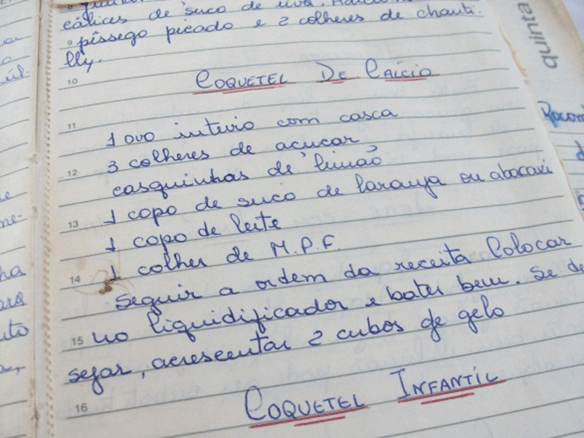 cálices de suco de uva.
pêssego picado e 2 colheres de chanti-
lly.
10
COQUETEL DE CÁLCIO
11
1 ovo inteiro com casca
3 colheres de açucar
12
casquinhas de limão
1 copo de suco de laranja ou abacaxi
13
1 copo de leite
1 colher de M.P.F.
14
seguir a ordem da receita Colocar
15 no liquidificador e bater bem. Se de
sejar, acrescentar 2 cubos de gelo
16
COQUETEL INFANTIL
quinta